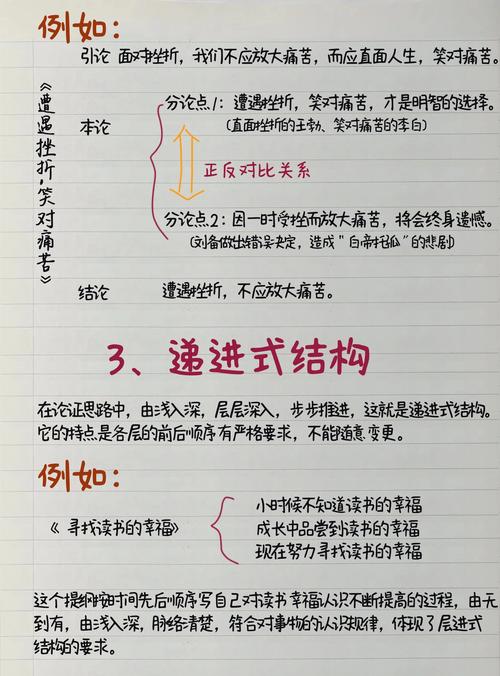 例如：
引论 面对挫折，我们不应放大痛苦，而应直面人生，笑对痛苦。
《遭遇挫折，笑对痛苦》
本论
分论点1：遭遇挫折，笑对痛苦，才是明智的选择。
（直面挫折的王勃、笑对痛苦的李白）
正反对比关系
分论点2：因一时受挫而放大痛苦，将会终身遗憾。
（刘备做出错误决定，造成"白帝托孤"的悲剧）
结论 遭遇挫折，不应放大痛苦。
3、递进式结构
在论证思路中，由浅入深，层层深入，步步推进，这就是递进式结构。
它的特点是各层的前后顺序有严格要求，不能随意变更。
例如：
《寻找读书的幸福》
小时候不知道读书的幸福
成长中品尝到读书的幸福
现在努力寻找读书的幸福
这个提纲按时间先后顺序写自己对读书幸福认识不断提高的过程，由无
到有，由浅入深，脉络清楚，符合对事物的认识规律，体现了层进式
结构的要求。